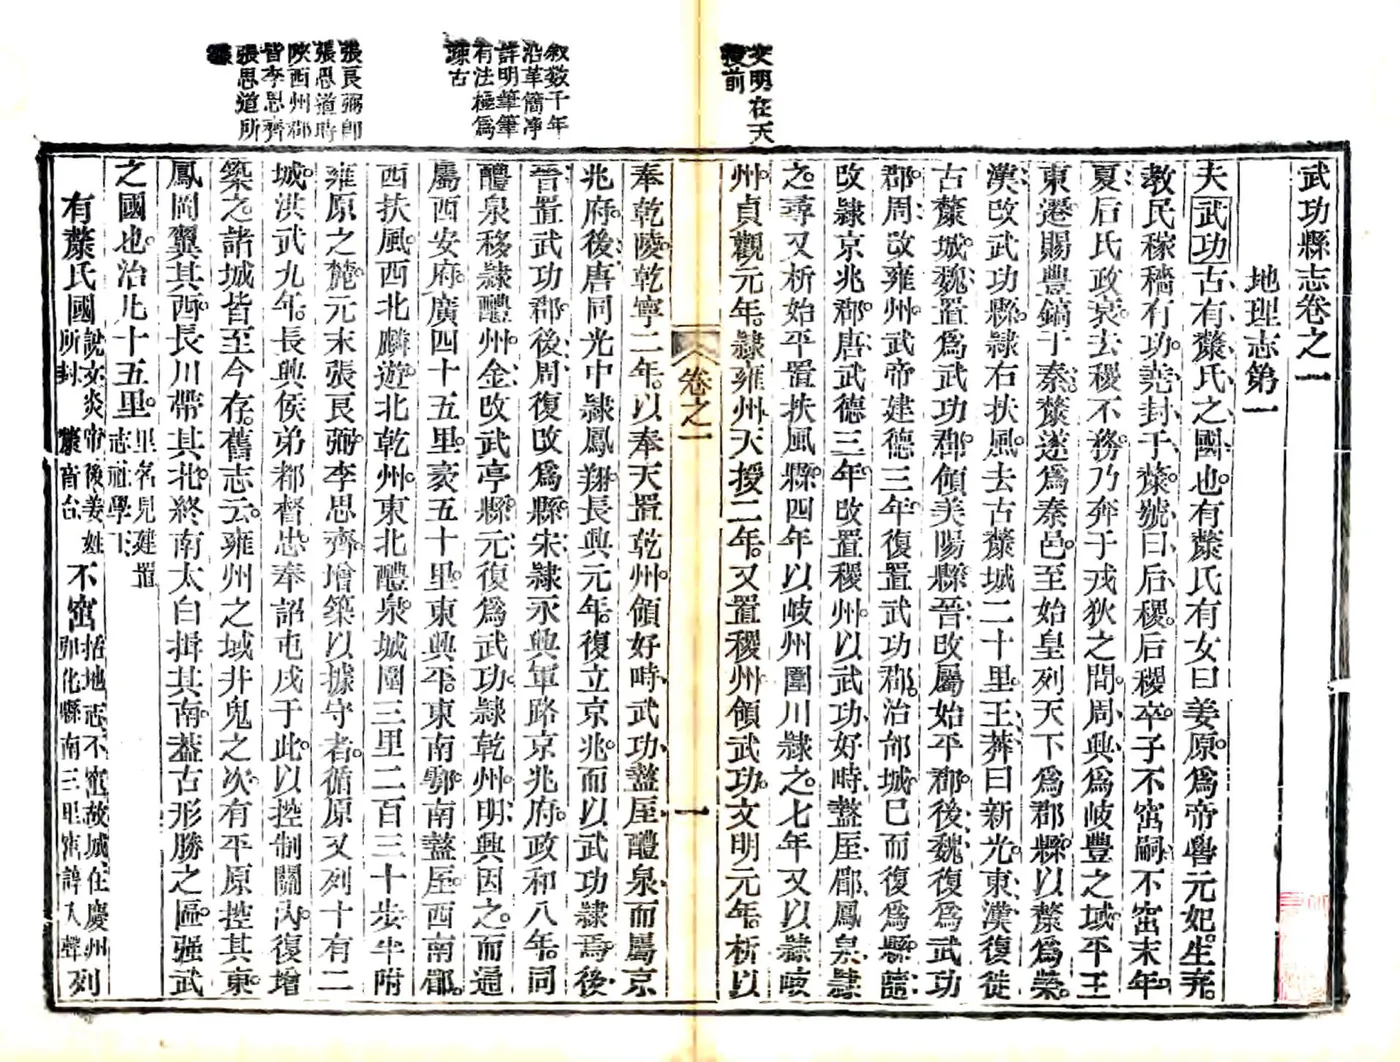 文明在天
授前
敘數千年
沿革簡凈
詳明筆筆
有法極爲
陳古
張良弼卽
張思道時
陝西州郡
皆李思齊
張思道所
武功縣志卷之一
地理志第一
夫武功古有斄氏之國也有斄氏有女曰姜原爲帝嚳元妃生棄
教民稼穡有功堯封于斄號曰后稷后稷卒子不窋嗣不窋末年
夏后氏政衰去稷不務乃奔于戎狄之間周興爲岐豐之域平王
東遷賜豐鎬于秦斄遂爲秦邑至始皇列天下爲郡縣以斄爲斄
漢改武功縣隸右扶風去古斄城二十里王莽曰新光東漢復徙
古斄城魏置爲武功郡領美陽縣晉改屬始平郡後魏復爲武功
郡周改雍州武帝建德三年復置武功郡治郃城已而復爲縣隨
改隸京兆郡唐武德三年改置稷州以武功好畤盩厔郿鳳泉隸
之尋又析始平置扶風縣四年以岐州圍川隸之七年又以隸岐
州貞觀元年隸雍州天授二年又置稷州領武功文明元年析以
卷之一
一
奉乾陵乾寧二年以奉天置乾州領好畤武功盩厔醴泉而屬京
兆府後唐同光中隸鳳翔長興元年復立京兆而以武功隸焉後
晉置武功郡後周復改爲縣宋隸永興軍路京兆府政和八年同
醴泉移隸醴州金改武亭縣元復爲武功隸乾州明興因之而通
屬西安府廣四十五里袤五十里東興平東南鄠南盩厔西南郿
西扶風西北麟遊北乾州東北醴泉城圍三里二百三十步半附
雍原之麓元末張良弼李思齊增築以據守者循原又列十有二
城洪武九年長興侯弟都督忠奉詔屯戍于此以控制關內復增
築之諸城皆至今存舊志云雍州之域井鬼之次有平原控其東
鳳岡翼其西長川帶其北終南太白揖其南蓋古形勝之區强武
之國也治凡十五里里名見建置志祖學下
有斄氏國說文炎帝後姜姓所封斄音台不窋括地志不窋故城在慶州弘化縣南三里窋諄入聲列